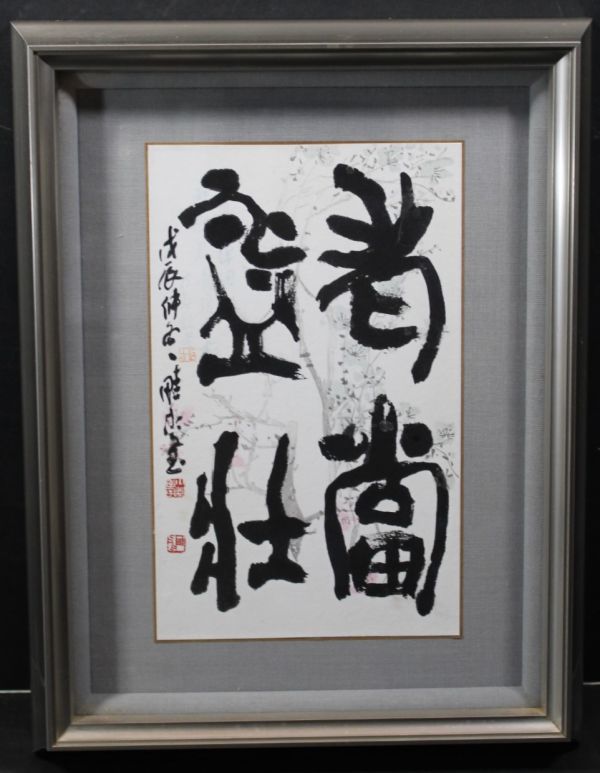 老當
益壯
戊辰仲冬